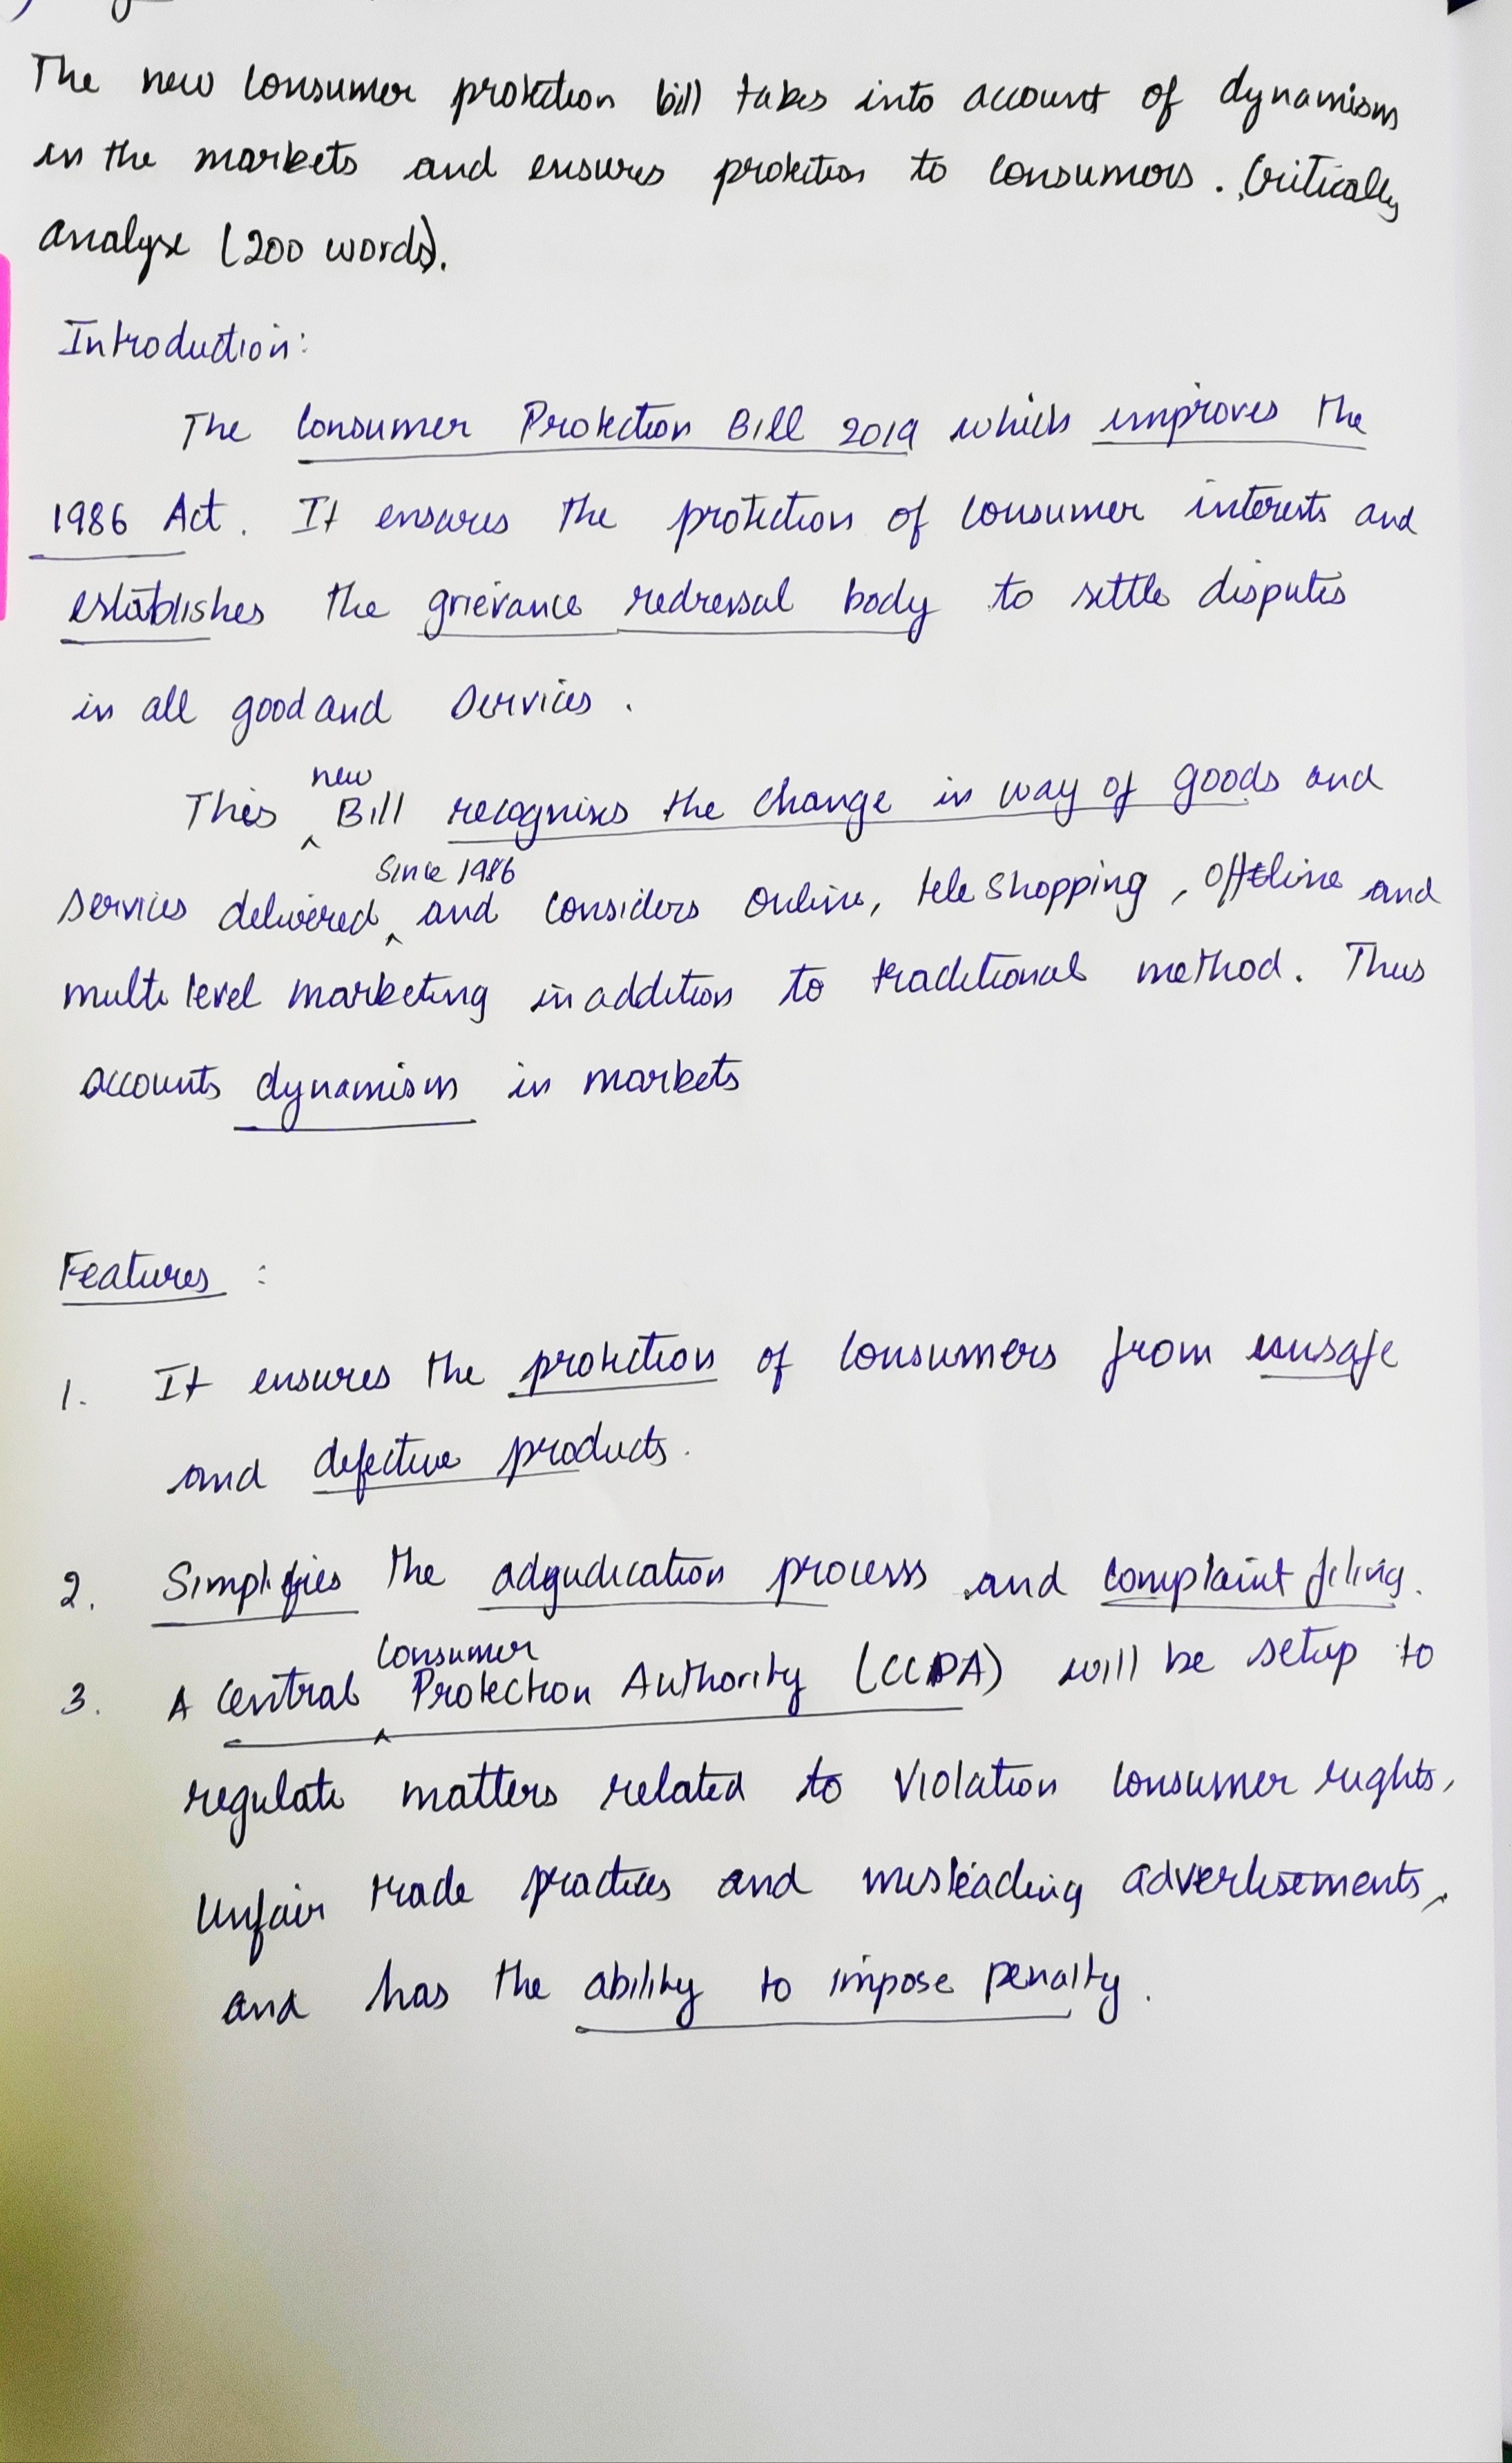 The new Consumer protection bill takes into account of dynamism
in the markets and ensures protection to consumers. Critically
analyse (200 words).
Introduction:
The Consumer Protection Bill 2019 which improves the
1986 Act. It ensures the protection of consumer interests and
establishes the grievance redressal body to settle disputes
in all good and services.
This new Bill recognises the change in way of goods and
services delivered since 1986 and considers online, tele shopping, offline and
multi level marketing in addition to traditional method. Thus
accounts dynamism in markets
Features :
1. It ensures the protection of consumers from unsafe
and defective products.
2. Simplifies the adgudication process and complaint filing.
3. A Central Consumer Protection Authority (CCPA) will be setup to
regulate matters related to violation consumer rights,
Unfair trade practices and misleading advertisements,
and has the ability to impose penalty.